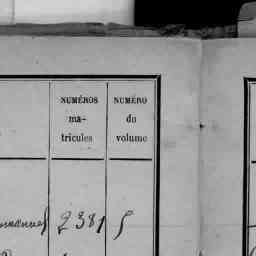 NUMÉROS
ma-
tricules
NUMÉRO
du
volume
2381 5